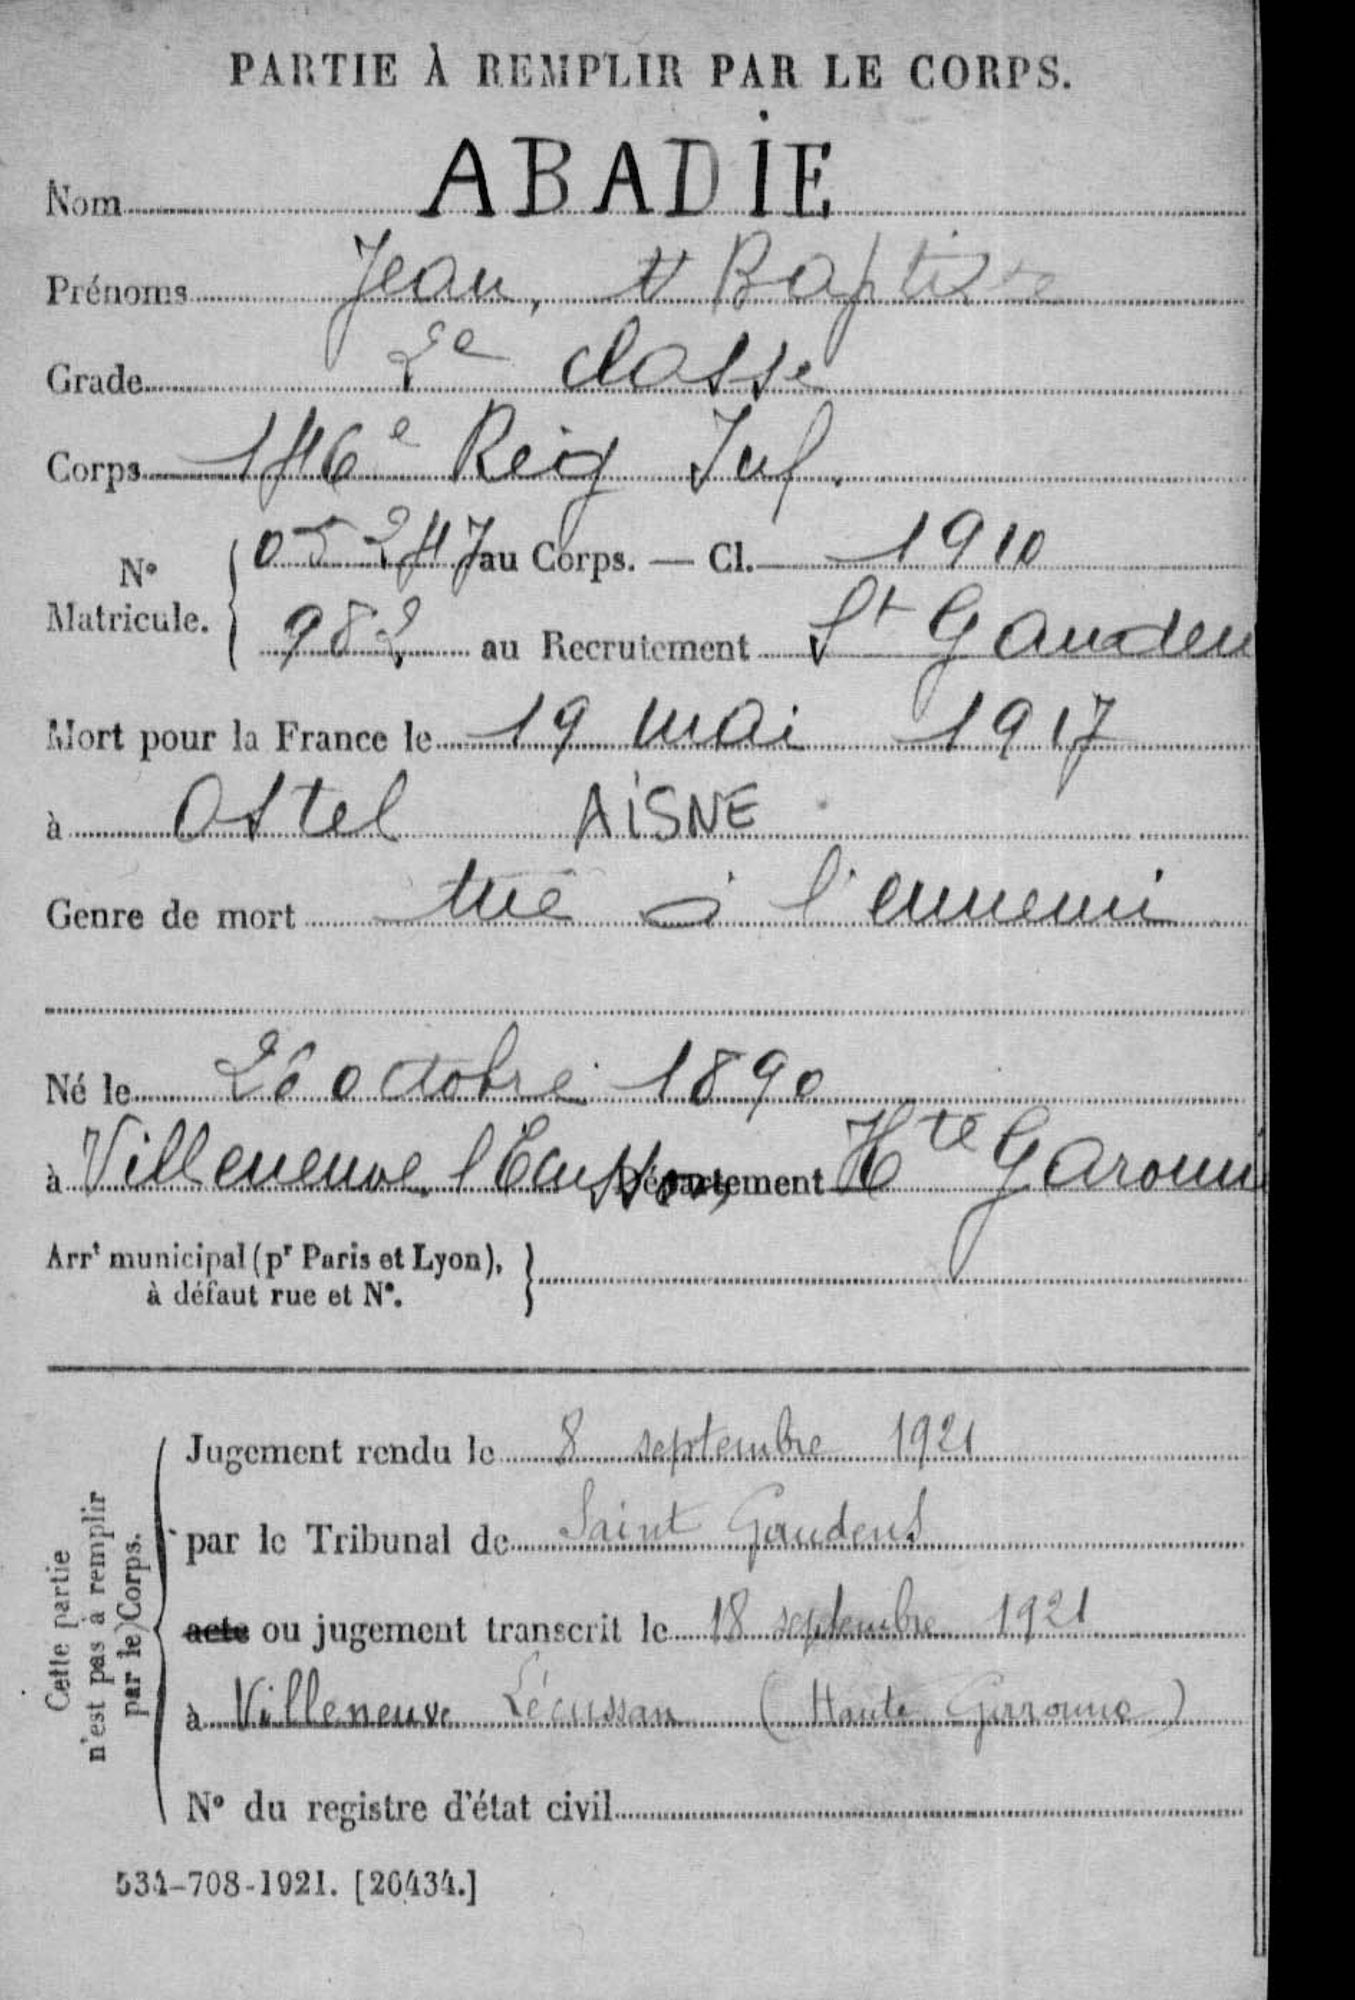 PARTIE À REMPLIR PAR LE CORPS.
Nom ABADIE
Prénoms Jean, Baptiste
Grade 2e classe
Corps 146e Reig Inf.
N° Matricule. { 05247 au Corps. — Cl. 1910
982 au Recrutement St Gauden
Mort pour la France le 19 mai 1917
à Ostel AISNE
Genre de mort tué à l'ennemi
Né le 26 octobre 1890
à Villeneuve Département Hte Garonn
Arrt municipal (pr Paris et Lyon), }
à défaut rue et N°.
Cette partie
n'est pas à remplir
par le Corps.
Jugement rendu le 8 septembre 1921
par le Tribunal de Saint Gaudens
acte ou jugement transcrit le 18 septembre 1921
à Villeneuve Lécussan (Haute Garonne)
N° du registre d'état civil
534-708-1921. [26434.]